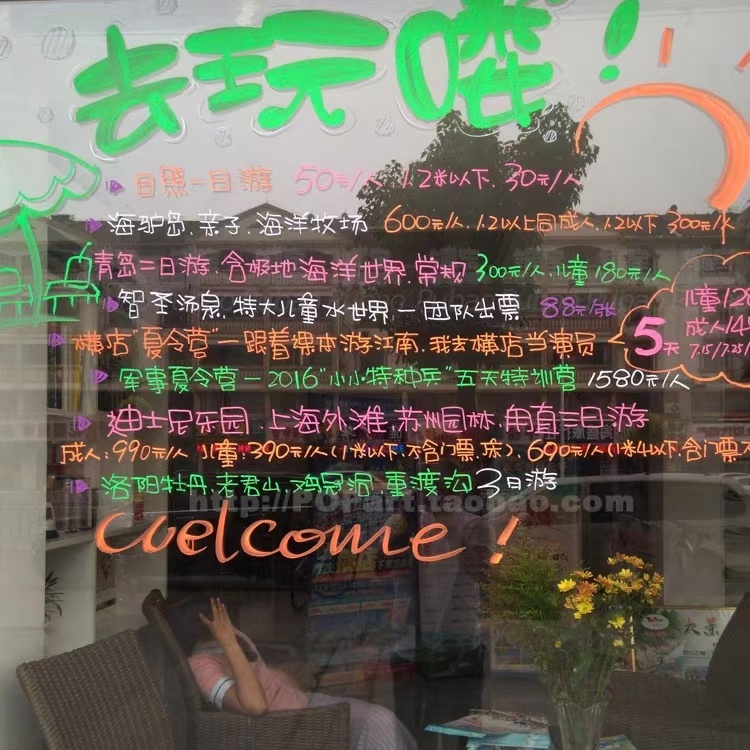 去玩喽!
日照一日游 50元/人 1.2米以下.30元/人
海驴岛.亲子.海洋牧场 600元/人.1.2以上同成人.1.2以下 300元/人
青岛二日游.含极地海洋世界.常规 300元/人.儿童180元/人
智圣汤泉.特大儿童水世界一团队出票 88元/张
横店"夏令营"一跟着课本游江南.我去横店当演员
5天
儿童12
成人14
7.15/7.25/
军事夏令营一2016"小小特种兵"五天特训营 1580元/人
迪士尼乐园.上海外滩.苏州园林.甪直三日游
成人:990元/人 儿童:390元/人(1米以下.不含门票.床).690元/人(1米4以下.含门票.不
洛阳牡丹.老君山.鸡冠洞.重渡沟3日游
http://POPart.taobao.com
welcome!